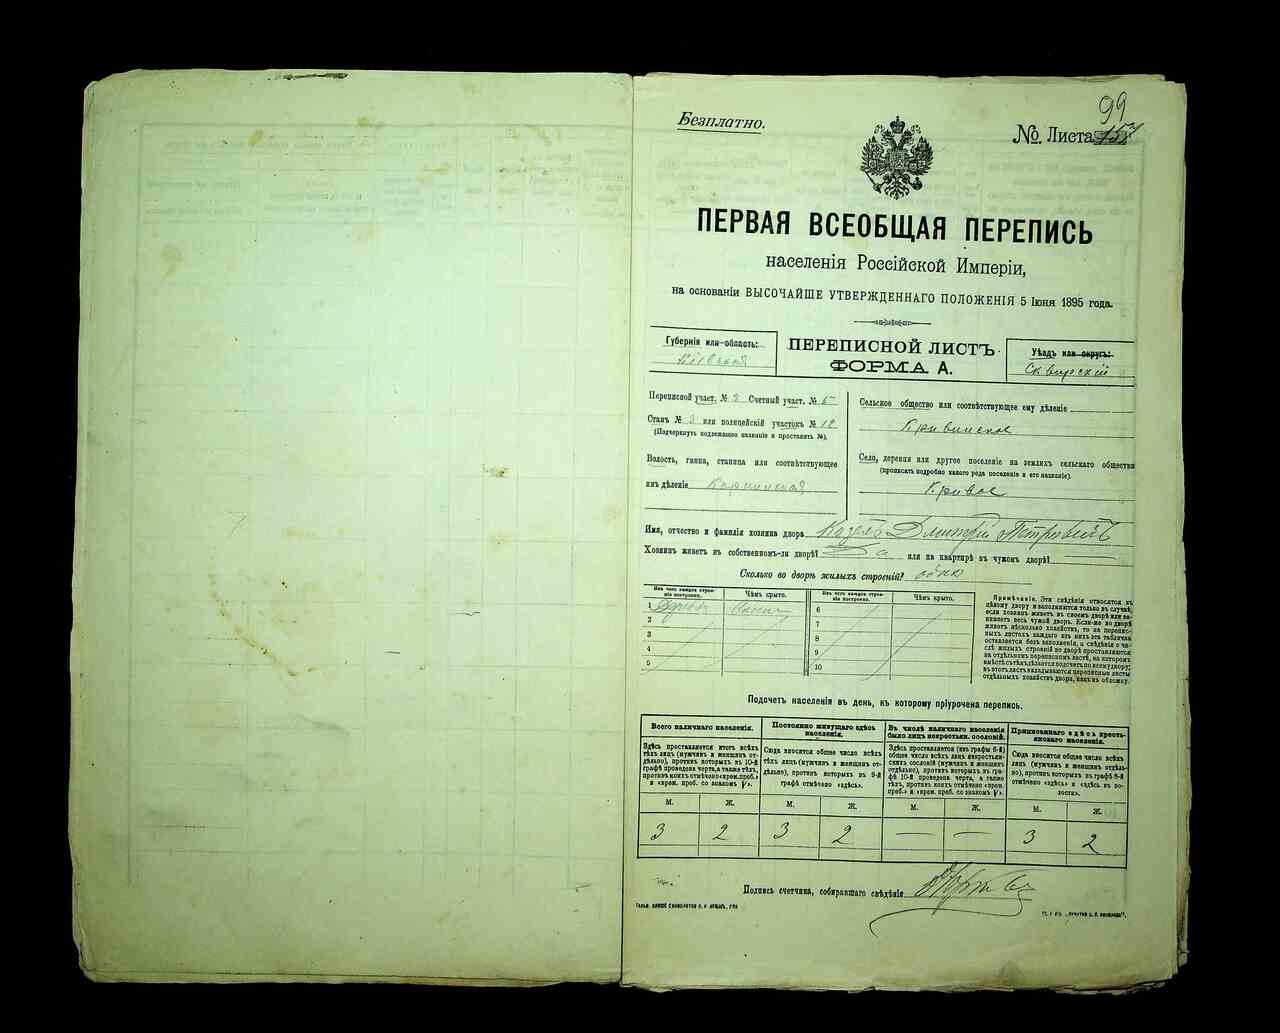 99
Безплатно.
№. Листа 157
ПЕРВАЯ ВСЕОБЩАЯ ПЕРЕПИСЬ
населенія Россійской Имперіи,
на основаніи ВЫСОЧАЙШЕ УТВЕРЖДЕННАГО ПОЛОЖЕНІЯ 5 Іюня 1895 года.
Губернія или область:
Кіевская
ПЕРЕПИСНОЙ ЛИСТЪ
ФОРМА А.
Уѣздъ или округъ:
Сквирскій
Переписной участ. № 2 Счетный участ. № 5
Станъ № 3 или полицейскій участокъ № 12
(Подчеркнуть подлежащее названіе и проставить №).
Волость, гмина, станица или соотвѣтствующее
имъ дѣленіе Корнинская
Сельское общество или соотвѣтствующее ему дѣленіе
Кривинское
Село, деревня или другое поселеніе на земляхъ сельскаго общества
(прописать подробно какого рода поселеніе и его названіе).
Кривое
Имя, отчество и фамилія хозяина двора Козелъ Дмитрій Петровичъ
Хозяинъ живетъ въ собственномъ-ли дворѣ? Да или на квартирѣ въ чужомъ дворѣ?
Сколько во дворѣ жилыхъ строеній? одно
Изъ чего каждое строеніе построено.
Чѣмъ крыто.
Изъ чего каждое строеніе построено.
Чѣмъ крыто.
1
6
2
7
3
8
4
9
5
10
Примѣчаніе. Эти свѣдѣнія относятся къ
цѣлому двору и заполняются только въ случаѣ,
если хозяинъ живетъ въ своемъ дворѣ или занимаетъ весь чужой дворъ. Если-же во дворѣ
живетъ нѣсколько хозяйствъ, то на переписныхъ листахъ каждаго изъ нихъ эта табличка
оставляется безъ заполненія, а свѣдѣнія о числѣ жилыхъ строеній во дворѣ проставляются
на отдѣльномъ переписномъ листѣ, на которомъ
вмѣстѣ съ тѣмъ дѣлается подсчетъ по всему двору;
въ этотъ листъ вкладываются переписные листы
отдѣльныхъ хозяйствъ двора, какъ въ обложку.
Подсчетъ населенія въ день, къ которому пріурочена перепись.
Всего наличнаго населенія.
Здѣсь проставляется итогъ всѣхъ тѣхъ лицъ (мужчинъ и женщинъ отдѣльно), противъ которыхъ въ 10-й графѣ проведена черта, а также тѣхъ, противъ коихъ отмѣчено «врем. преб.» и «врем. проб. со знакомъ V».
Постоянно живущаго здѣсь населенія.
Сюда вносится общее число всѣхъ тѣхъ лицъ (мужчинъ и женщинъ отдѣльно), противъ которыхъ въ 9-й графѣ отмѣчено «здѣсь».
Въ числѣ наличнаго населенія было лицъ некрестьян. сословій.
Здѣсь проставляется (изъ графы 6-й) общее число всѣхъ лицъ некрестьянскихъ сословій (мужчинъ и женщинъ отдѣльно), противъ которыхъ въ графѣ 10-й проведена черта, а также тѣхъ, противъ коихъ отмѣчено «врем. преб.» и «врем. преб. со знакомъ V».
Приписаннаго здѣсь крестьянскаго населенія.
Сюда вносится общее число всѣхъ лицъ (мужчинъ и женщинъ отдѣльно), противъ которыхъ въ графѣ 8-й отмѣчено «здѣсь» и «здѣсь въ волости».
М. Ж. М. Ж. М. Ж. М. Ж.
3 2 3 2 — — 3 2
Подпись счетчика, собиравшаго свѣдѣнія